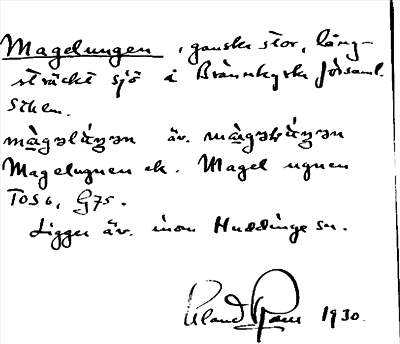 Magelungen, ganska stor, lång-
sträckt sjö i Brännkyrka församl.
Sthlm.
màgəlúŋən äv. màgəlúŋən
Magelugnen ek. Magel ugnen
TOS6, G75.
Ligger äv. inom Huddinge sn.
1930.